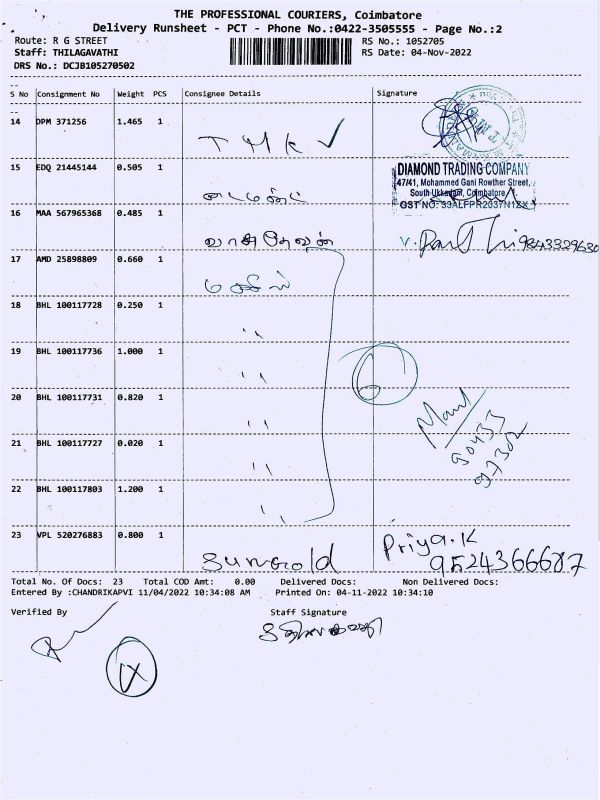 THE PROFESSIONAL COURIERS, Coimbatore
Delivery Runsheet - PCT - Phone No.:0422-3505555 - Page No.:2
Route: R G STREET
Staff: THILAGAVATHI
DRS No.: DCJB105270502
RS No.: 1052705
RS Date: 04-Nov-2022
S No Consignment No Weight PCS Consignee Details Signature
14 DPM 371256 1.465 1
T M K ✓
15 EDQ 21445144 0.505 1
DIAMOND TRADING COMPANY
47/41, Mohammed Gani Rowther Street,
South Ukkadam, Coimbatore
GST NO: 33ALFPR2037N1ZX
16 MAA 567965368 0.485 1
V. 9843329630
17 AMD 25898809 0.660 1
18 BHL 100117728 0.250 1
"
19 BHL 100117736 1.000 1
"
6
20 BHL 100117731 0.820 1
"
90433
97302
21 BHL 100117727 0.020 1
"
22 BHL 100117803 1.200 1
"
23 VPL 520276883 0.800 1
sungold
Priya.K
9524366687
Total No. Of Docs: 23 Total COD Amt: 0.00 Delivered Docs: Non Delivered Docs:
Entered By :CHANDRIKAPVI 11/04/2022 10:34:08 AM Printed On: 04-11-2022 10:34:10
Verified By Staff Signature
IX